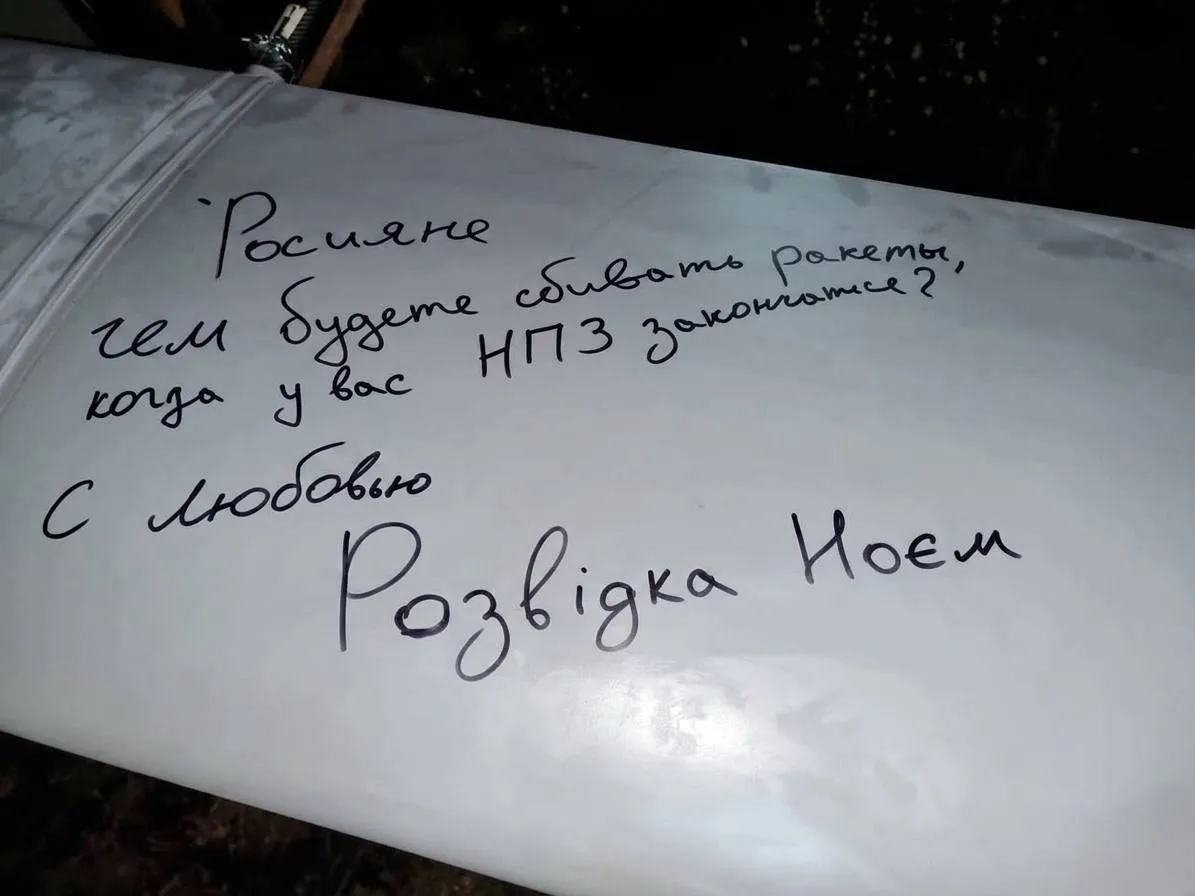 Росияне
чем будете сбивать ракеты,
когда у вас НПЗ закончатся?
С любовью
Розвідка Ноєм